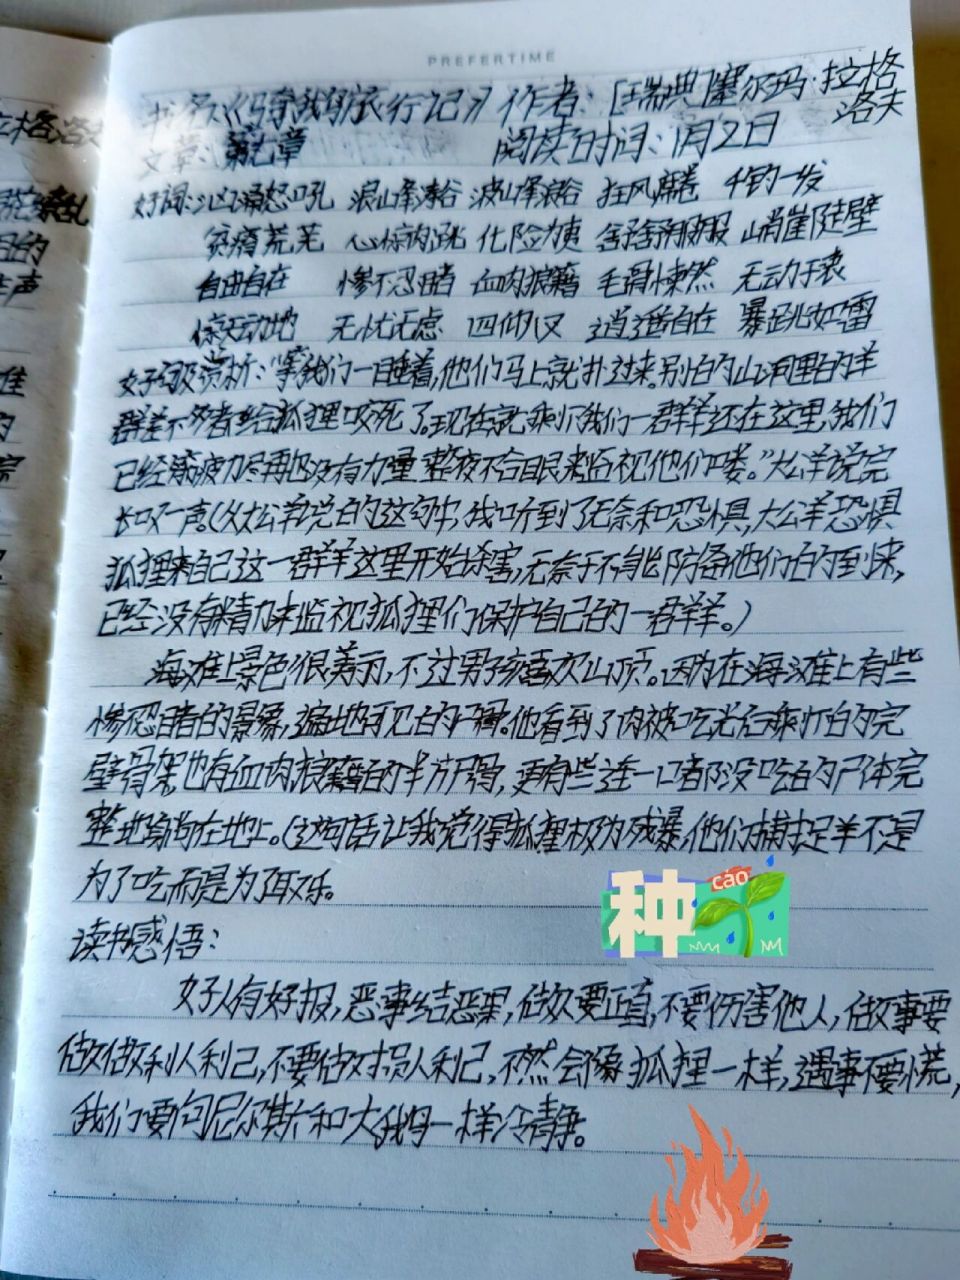 PREFERTIME
书名:《骑鹅旅行记》作者:[瑞典]塞尔玛·拉格
洛夫
文章:第七章 阅读时间:1月2日
好词:汹涌怒吼 浪峰浪谷 波峰浪谷 狂风席卷 千钧一发
贫瘠荒芜 心惊肉跳 化险为夷 舒舒服服 峭崖陡壁
自由自在 惨不忍睹 血肉狼籍 毛骨悚然 无动于衷
惊天动地 无忧无虑 四仰八叉 逍遥自在 暴跳如雷
好句及赏析:“等我们一睡着,他们马上就扑过来。别的山洞里的羊
群差不多都给狐狸咬死了。现在就剩下我们一群羊还在这里,我们
已经筋疲力尽再也没有力量整夜不合眼来监视他们喽。”大公羊说完
长叹一声。(从大公羊说的这句中,我听到了无奈和恐惧,大公羊恐惧
狐狸来自己这一群羊这里开始杀害,无奈于不能防备他们的到来,
已经没有精力来监视狐狸们保护自己的一群羊。)
海滩上景色很美丽,不过男孩喜欢山顶。因为在海滩上有些
惨忍睹的景象,遍地可见的尸骨。他看到了肉被吃光后剩下的完
壁骨架,也有血肉狼籍的半片尸骨,更有些连一口都没吃的尸体完
整地躺在地上。(这句话让我觉得狐狸极为残暴,他们捕捉羊不是
为了吃而是为了取乐。
种 cǎo
读书感悟:
好人有好报,恶事结恶果,做人要正直,不要伤害他人,做事要
做做利人利己,不要做损人利己,不然会像狐狸一样,遇事不要慌,
我们要向尼尔斯和大鹅一样冷静。